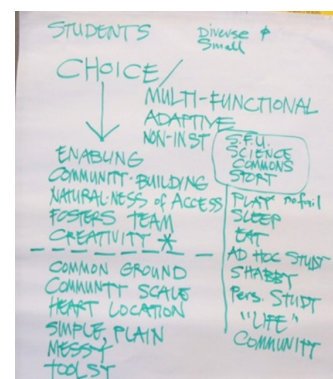 STUDENTS
Diverse &
Small
CHOICE/
MULTI-FUNCTIONAL
ADAPTIVE
NON-INST
ENABLING
COMMUNITY-BUILDING
NATURAL-NESS of ACCESS
FOSTERS TEAM
CREATIVITY *
COMMON GROUND
COMMUNITY SCALE
HEART LOCATION
SIMPLE, PLAIN
MESSY
TOOLSY
S.F.U.
SCIENCE
COMMONS
STORY
PLAY
SLEEP
EAT
AD HOC STUDY
SHABBY
Pers. STUDY
"LIFE"
COMMUNITY